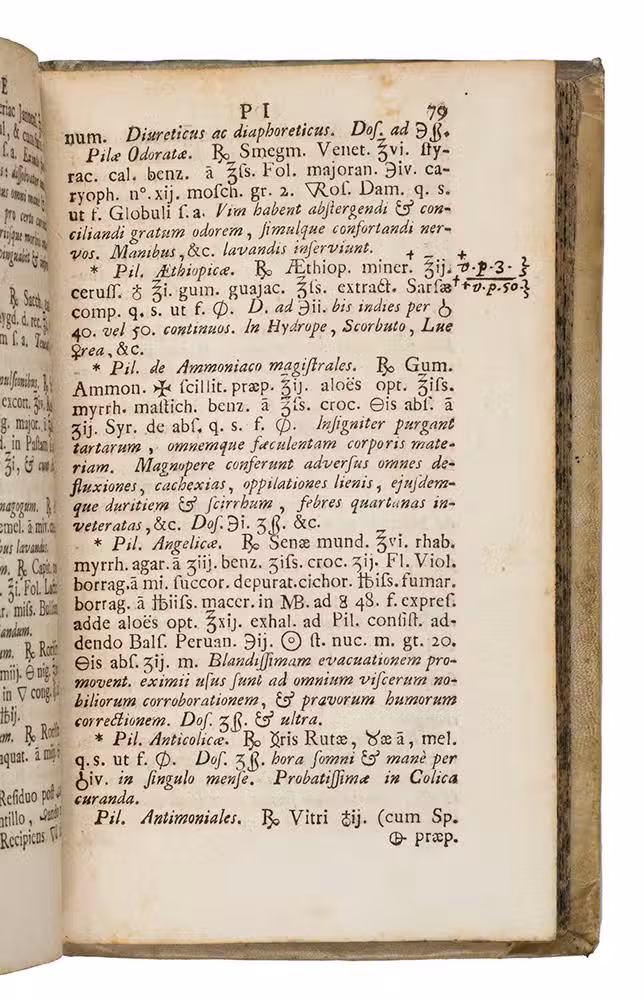 P I 79
num. Diureticus ac diaphoreticus. Doſ. ad ℈ß.
Pilæ Odoratæ. ℞ Smegm. Venet. ℥vi. ſty-
rac. cal. benz. ā ℥ſs. Fol. majoran. ℈iv. ca-
ryoph. n°. xij. moſch. gr. 2. ▽Roſ. Dam. q. s.
ut f. Globuli ſ. a. Vim habent abſtergendi & con-
ciliandi gratum odorem, ſimulque confortandi ner-
vos. Manibus, &c. lavandis inſerviunt.
* Pil. Æthiopicæ. ℞ Æthiop. miner. ℥ij.
ceruſſ. ♁ ℥i. gum. guajac. ℥ſs. extract. Sarſæ
comp. q. s. ut f. Ф. D. ad ℈ii. bis indies per
40. vel 50. continuos. In Hydrope, Scorbuto, Lue
♀rea, &c.
* Pil. de Ammoniaco magiſtrales. ℞ Gum.
Ammon. ✠ ſcillit. præp. ℥ij. aloës opt. ℥iſs.
myrrh. maſtich. benz. ā ℥ſs. croc. ⊖is abſ. ā
ʒij. Syr. de abſ. q. s. f. Ф. Inſigniter purgant
tartarum, omnemque fæculentam corporis mate-
riam. Magnopere conferunt adverſus omnes de-
fluxiones, cachexias, oppilationes lienis, ejuſdem-
que duritiem & ſcirrhum, febres quartanas in-
veteratas, &c. Doſ. ℈i. ʒß. &c.
* Pil. Angelicæ. ℞ Senæ mund. ℥vi. rhab.
myrrh. agar. ā ʒiij. benz. ʒiſs. croc. ʒij. Fl. Viol.
borrag. ā mi. ſuccor. depurat. cichor. ℔iſs. fumar.
borrag. ā ℔iiſs. macer. in MB. ad 48. f. expreſ.
adde aloës opt. ℥xij. exhal. ad Pil. conſiſt. ad-
dendo Balſ. Peruan. ℈ij. ☉ ſt. nuc. m. gt. 20.
⊖is abſ. ʒij. m. Blandiſſimam evacuationem pro-
movent. eximii uſus ſunt ad omnium viſcerum no-
biliorum corroborationem, & pravorum humorum
correctionem. Doſ. ʒß. & ultra.
* Pil. Anticolicæ. ℞ ris Rutæ, æ ā, mel.
q. s. ut f. Ф. Doſ. ʒß. hora ſomni & manè per
iv. in ſingulo menſe. Probatiſſimæ in Colica
curanda.
Pil. Antimoniales. ℞ Vitri ♁ij. (cum Sp.
præp.